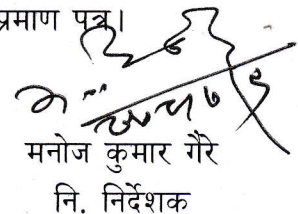 प्रमाण पत्र।
मनोज कुमार गैरे
नि. निर्देशक